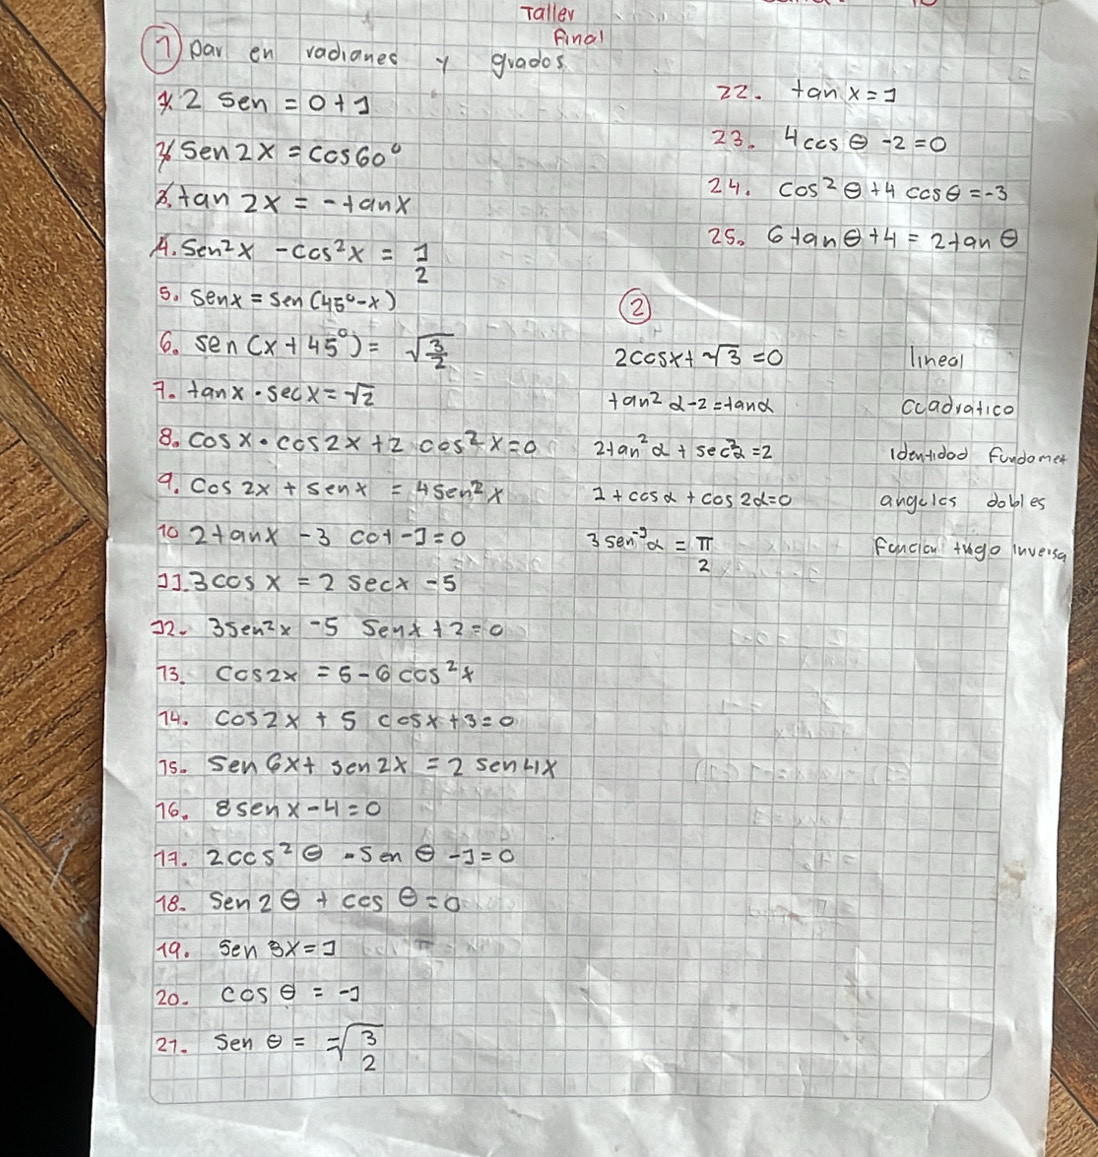 Taller
Final
1 Dar en radianes y grados
1. 2 sen = 0 + 1
2. Sen 2x = cos 60°
3. tan 2x = -tan x
4. Sen²x - cos²x = 1/2
5. Senx = sen (45° - x)
6. sen (x + 45°) = √3/2
7. tan x · sec x = √2
8. cos x · cos 2x + 2 cos²x = 0
9. Cos 2x + sen x = 4 sen²x
10 2 tan x - 3 cot - 1 = 0
11. 3 cos x = 2 sec x - 5
12. 3 sen²x - 5 Sen x + 2 = 0
13. cos 2x = 5 - 6 cos²x
14. cos 2x + 5 cos x + 3 = 0
15. Sen 6x + sen 2x = 2 sen 4x
16. 8 sen x - 4 = 0
17. 2 cos²θ - sen θ - 1 = 0
18. Sen 2θ + cos θ = 0
19. Sen 3x = 1
20. cos θ = -1
21. Sen θ = -√3/2
22. tan x = 1
23. 4 cos θ - 2 = 0
24. cos²θ + 4 cos θ = -3
25. 6 tan θ + 4 = 2 tan θ
2
2cosx + √3 = 0 lineal
tan²α - 2 = tanα cuadratico
2tan²α + sec²α = 2 Identidad fundamet
1 + cosα + cos 2α = 0 angulos dobles
3 sen⁻¹α = π/2 Funcion trigo inversa